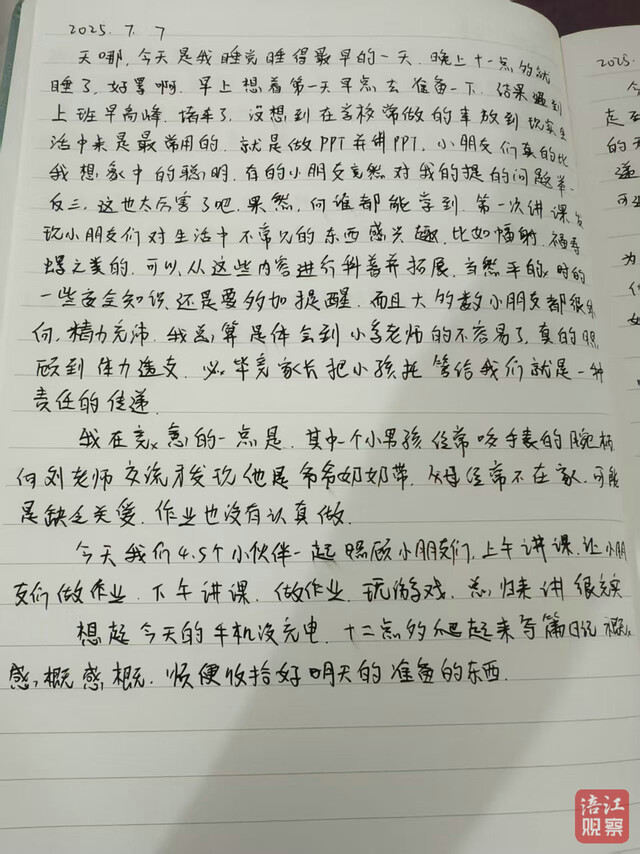 2025. 7. 7
天哪,今天是我睡觉睡得最早的一天.晚上十一点多就
睡了,好累啊.早上想着第一天早点去准备一下.结果遇到
上班早高峰,堵车了.没想到在学校常做的事放到现实生
活中来是最常用的.就是做PPT并讲PPT.小朋友们真的比
我想象中的聪明.有的小朋友竟然对我的提的问题举一
反三.这也太厉害了吧.果然,向谁都能学到.第一次讲课发
现小朋友们对生活中不常见的东西感兴趣.比如辐射.福寿
螺之类的.可以从这些内容进行科普并拓展.当然平时的
一些安全知识还是要多加提醒.而且大多数小朋友都很外
向,精力充沛.我总算是体会到小学老师的不容易了,真的照
顾到体力透支.毕竟家长把小孩托管给我们就是一种
责任的传递.
我在意的一点是.其中一个小男孩经常咬手表的腕
向刘老师交流才发现他是爷爷奶奶带.父母经常不在家.可能
是缺乏关爱.作业也没有认真做.
今天我们4.5个小伙伴一起照顾小朋友们,上午讲课.让小朋
友们做作业.下午讲课.做作业.玩游戏.总归来讲很充实
想起今天的手机没充电.十二点多爬起来写篇日记.概
感,概感,概.顺便收拾好明天的准备的东西.
2025.
今
走
的
递
可
为
涪江
观察